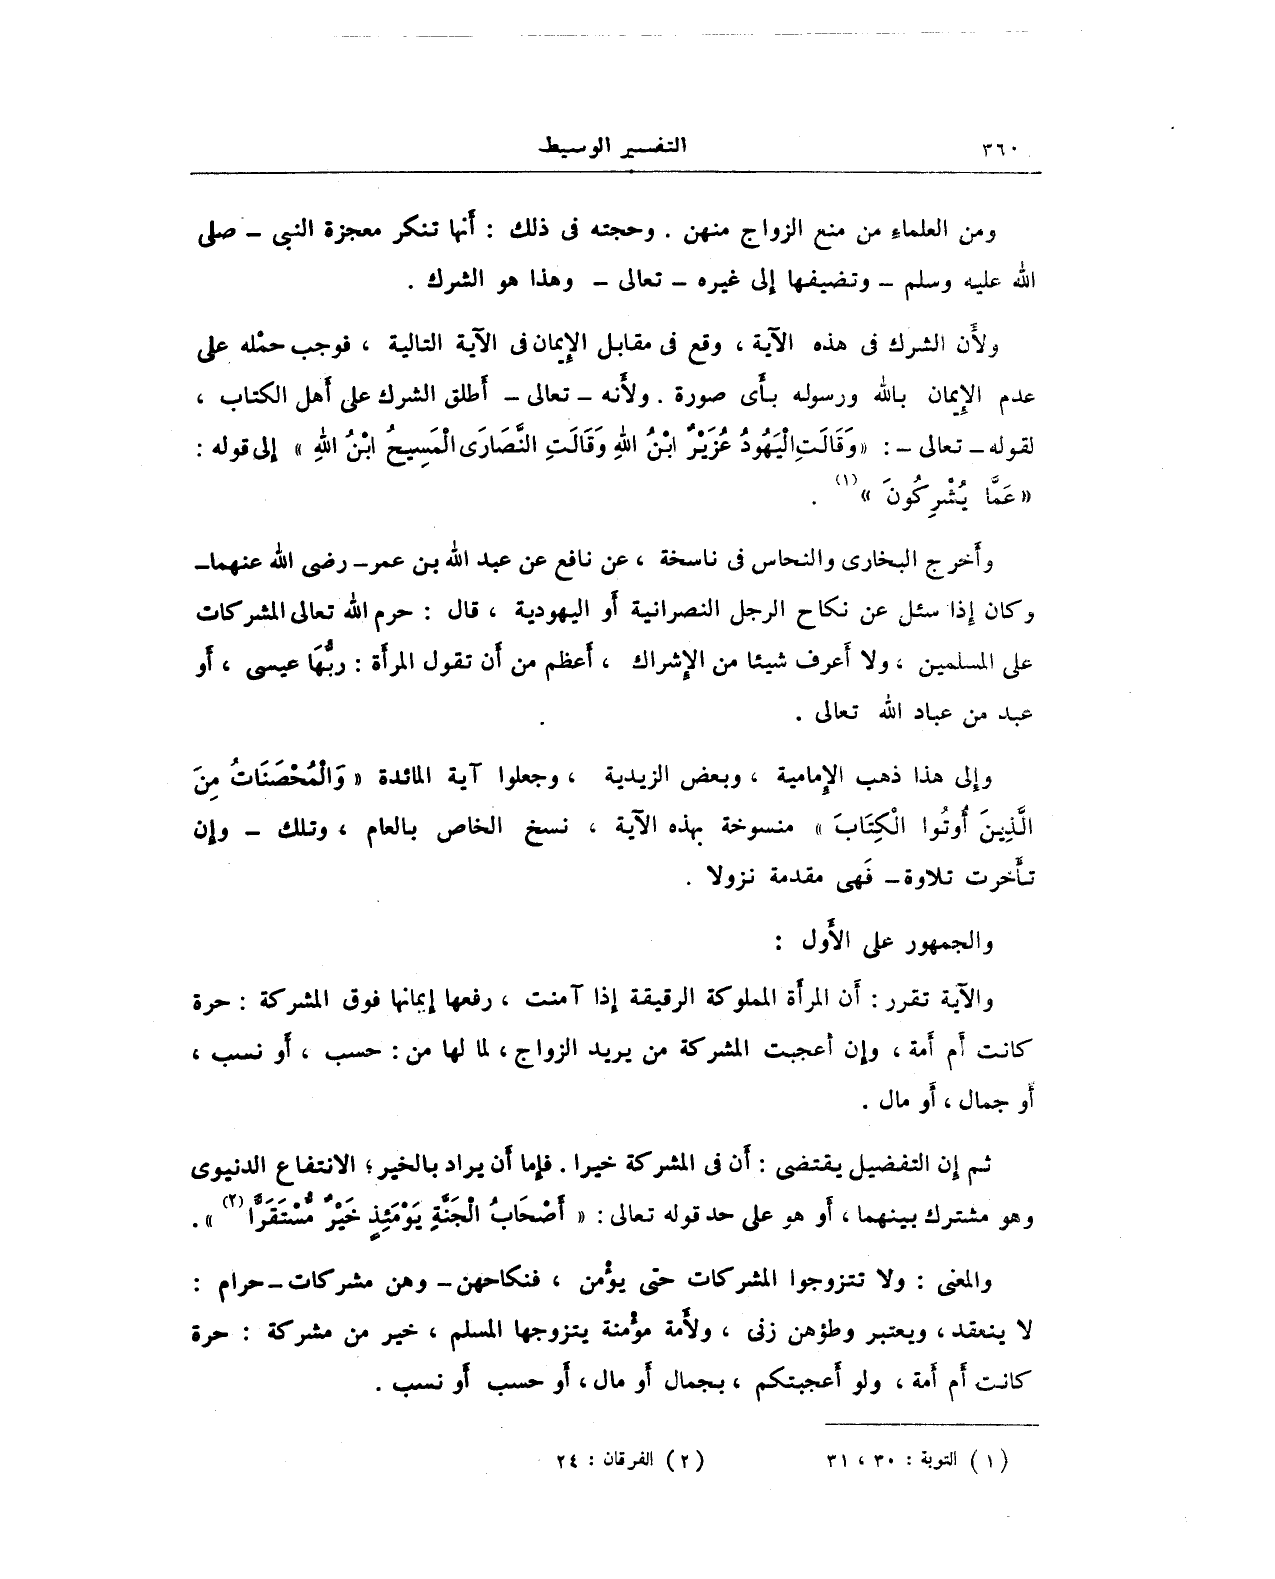 ٣٦٠ التفسير الوسيط
ومن العلماء من منع الزواج منهن . وحجته فى ذلك : أنها تنكر معجزة النبى – صلى
الله عليه وسلم – وتضيفها إلى غيره – تعالى – وهذا هو الشرك .
ولأن الشرك فى هذه الآية ، وقع فى مقابل الإيمان فى الآية التالية ، فوجب حمْله على
عدم الإيمان بالله ورسوله بأى صورة . ولأنه – تعالى – أطلق الشرك على أهل الكتاب ،
لقوله – تعالى – : « وَقَالَتِ الْيَهُودُ عُزَيْرٌ ابْنُ اللهِ وَقَالَتِ النَّصَارَى الْمَسِيحُ ابْنُ اللهِ » إلى قوله :
« عَمَّا يُشْرِكُونَ » (١) .
وأخرج البخارى والنحاس فى ناسخة ، عن نافع عن عبد الله بن عمر – رضى الله عنهما –
وكان إذا سئل عن نكاح الرجل النصرانية أو اليهودية ، قال : حرم الله تعالى المشركات
على المسلمين ، ولا أعرف شيئا من الإشراك ، أعظم من أن تقول المرأة : ربُّهَا عيسى ، أو
عبد من عباد الله تعالى .
وإلى هذا ذهب الإمامية ، وبعض الزيدية ، وجعلوا آية المائدة « وَالْمُحْصَنَاتُ مِنَ
الَّذِينَ أُوتُوا الْكِتَابَ » منسوخة بهذه الآية ، نسخ الخاص بالعام ، وتلك – وإن
تأخرت تلاوة – فَهى مقدمة نزولا .
والجمهور على الأول :
والآية تقرر : أن المرأة المملوكة الرقيقة إذا آمنت ، رفعها إيمانها فوق المشركة : حرة
كانت أم أمة ، وإن أعجبت المشركة من يريد الزواج ، لما لها من : حسب ، أو نسب ،
أو جمال ، أو مال .
ثم إن التفضيل يقتضى : أن فى المشركة خيرا . فإما أن يراد بالخير ؛ الانتفاع الدنيوى
وهو مشترك بينهما ، أو هو على حد قوله تعالى : « أَصْحَابُ الْجَنَّةِ يَوْمَئِذٍ خَيْرٌ مُّسْتَقَرًّا (٢) » .
والمعنى : ولا تتزوجوا المشركات حتى يؤْمن ، فنكاحهن – وهن مشركات – حرام :
لا ينعقد ، ويعتبر وطؤهن زنى ، ولأمة مؤْمنة يتزوجها المسلم ، خير من مشركة : حرة
كانت أم أمة ، ولو أعجبتكم ، بجمال أو مال ، أو حسب أو نسب .
(١) التوبة : ٣٠ ، ٣١ (٢) الفرقان : ٢٤